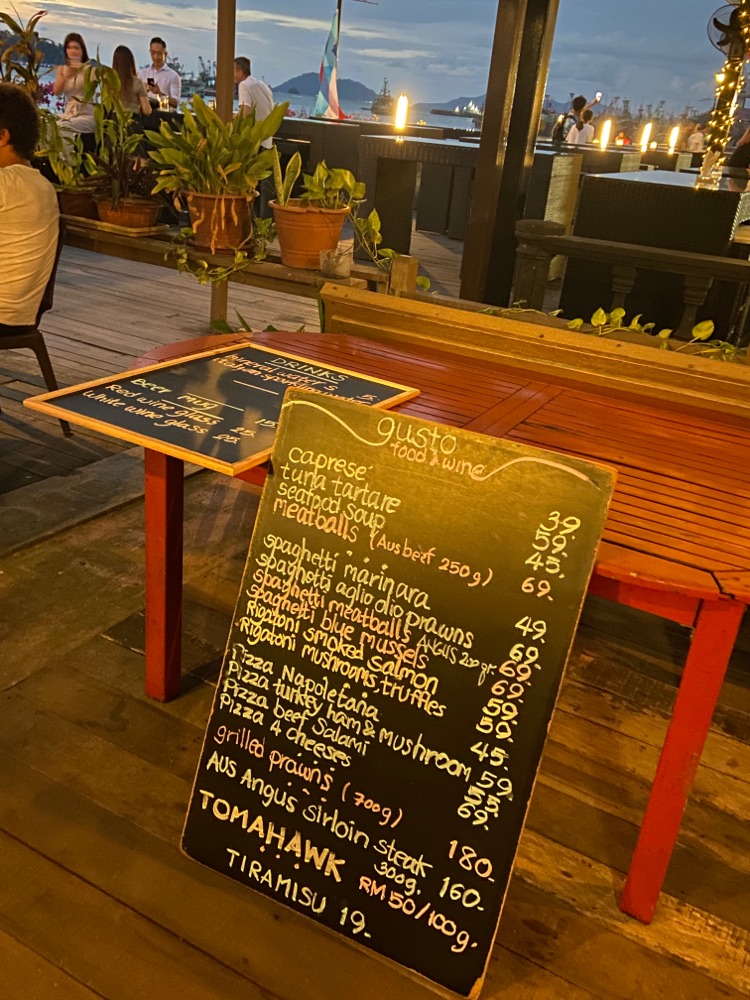 DRINKS
Mineral water S 5.
Italian sparkling
Beer mug 15.
Red wine glass 25.
White wine glass 25.
gusto
food & wine
caprese 39.
tuna tartare 59.
seafood soup 45.
meatballs (Aus beef 250g) 69.
spaghetti marinara 49.
spaghetti aglio olio prawns 69.
spaghetti meatballs ANGUS 200gr. 69.
spaghetti blue mussels 69.
Rigatoni smoked salmon 59.
Rigatoni mushrooms, truffles 59.
Pizza Napoletana 45.
Pizza turkey ham & mushroom 59.
Pizza beef salami 55.
Pizza 4 cheeses 69.
grilled prawns (700g) 180.
Aus Angus sirloin steak 300g. 160.
TOMAHAWK RM50/100g.
TIRAMISU 19.